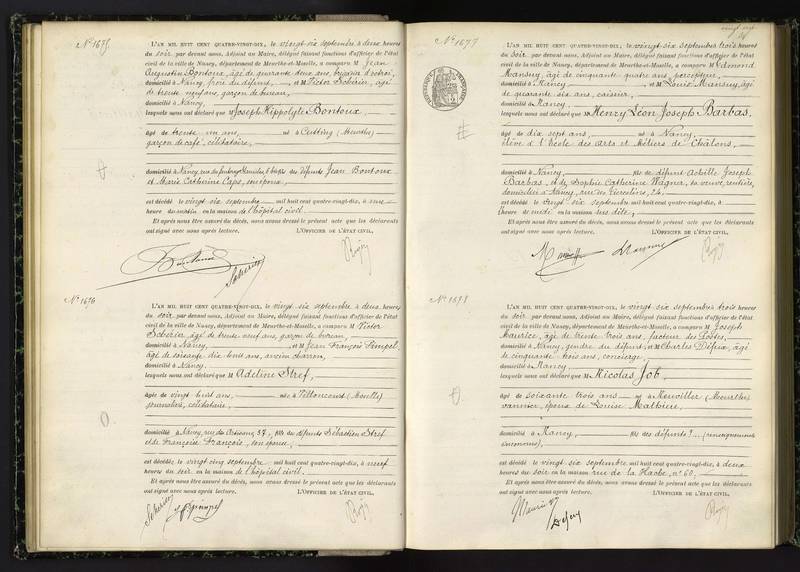 N° 1675
L'AN MIL HUIT CENT QUATRE-VINGT-DIX, le vingt-six septembre à deux heures
du soir par devant nous, Adjoint au Maire, délégué faisant fonctions d'officier de l'état
civil de la ville de Nancy, département de Meurthe-et-Moselle, a comparu M Jean
Augustin Bontoux, âgé de quarante deux ans, brigadier d'octroi,
domicilié à Nancy, frère du défunt, et M Victor Scherier, âgé
de trente neuf ans, garçon de bureau,
domicilié à Nancy,
lesquels nous ont déclaré que M Joseph Hippolyte Bontoux,
âgé de trente un ans, né à Cutting (Meurthe)
garçon de café, célibataire,
domicilié à Nancy, rue du faubourg fils des défunts Jean Bontoux
et Marie Catherine Caps, son épouse,
est décédé le vingt six septembre mil huit cent quatre-vingt-dix, à une
heure du matin en la maison de l'hôpital civil.
Et après nous être assuré du décès, nous avons dressé le présent acte que les déclarants
ont signé avec nous après lecture. L'OFFICIER DE L'ÉTAT CIVIL,
Bontoux
Scherier
N° 1676
L'AN MIL HUIT CENT QUATRE-VINGT-DIX, le vingt six septembre à deux heures
du soir par devant nous, Adjoint au Maire, délégué faisant fonctions d'officier de l'état
civil de la ville de Nancy, département de Meurthe-et-Moselle, a comparu M Victor
Scherier âgé de trente neuf ans, garçon de bureau,
domicilié à Nancy, et M Jean François
âgé de soixante dix huit ans, ancien charron,
domicilié à Nancy
lesquels nous ont déclaré que M Adeline Stref,
âgée de vingt huit ans, née à Vittoncourt (Moselle)
journalière, célibataire,
domicilié à Nancy, rue des Artisans, 37, fille des défunts Sébastien Stref
et de Françoise François, son épouse,
est décédée le vingt cinq septembre mil huit cent quatre-vingt-dix, à neuf
heures du soir en la maison de l'hôpital civil.
Et après nous être assuré du décès, nous avons dressé le présent acte que les déclarants
ont signé avec nous après lecture. L'OFFICIER DE L'ÉTAT CIVIL,
Scherier
N° 1677
RÉPUBLIQUE FRANÇAISE
L'AN MIL HUIT CENT QUATRE-VINGT-DIX, le vingt-six septembre trois heures
du soir, par devant nous, Adjoint au Maire, délégué faisant fonctions d'officier de l'état
civil de la ville de Nancy, département de Meurthe-et-Moselle, a comparu M Edmond
Mansuy, âgé de cinquante quatre ans, percepteur,
domicilié à Nancy et M Louis Mansuy, âgé
de quarante six ans, caissier,
domicilié à Nancy
lesquels nous ont déclaré que M Henry Léon Joseph Barbas,
âgé de dix sept ans, né à Nancy,
élève à l'Ecole des Arts et Métiers de Châlons,
domicilié à Nancy fils de défunt Achille Joseph
Barbas, et de Sophie Catherine Wagner, sa veuve, rentière,
domiciliée à Nancy, rue des 24,
est décédé le vingt six septembre mil huit cent quatre-vingt-dix, à
heure de midi en la maison sus dite,
Et après nous être assuré du décès, nous avons dressé le présent acte que les déclarants
ont signé avec nous après lecture. L'OFFICIER DE L'ÉTAT CIVIL,
Mansuy
N° 1678
L'AN MIL HUIT CENT QUATRE-VINGT-DIX, le vingt-six septembre trois heures
du soir, par devant nous, Adjoint au Maire, délégué faisant fonctions d'officier de l'état
civil de la ville de Nancy, département de Meurthe-et-Moselle, a comparu M Joseph
Maurice, âgé de trente trois ans, facteur des Postes,
domicilié à Nancy, gendre du défunt, et M Charles âgé
de cinquante trois ans, concierge,
domicilié à Nancy
lesquels nous ont déclaré que M Nicolas Job,
âgé de soixante trois ans né à (Meurthe)
vannier, époux de Louise Mathieu,
domicilié à Nancy, fils des défunts? (renseignements
inconnus),
est décédé le vingt six septembre mil huit cent quatre-vingt-dix, à deux
heures du soir en la maison rue de la Hache, n° 60,
Et après nous être assuré du décès, nous avons dressé le présent acte que les déclarants
ont signé avec nous après lecture. L'OFFICIER DE L'ÉTAT CIVIL,
Maurice